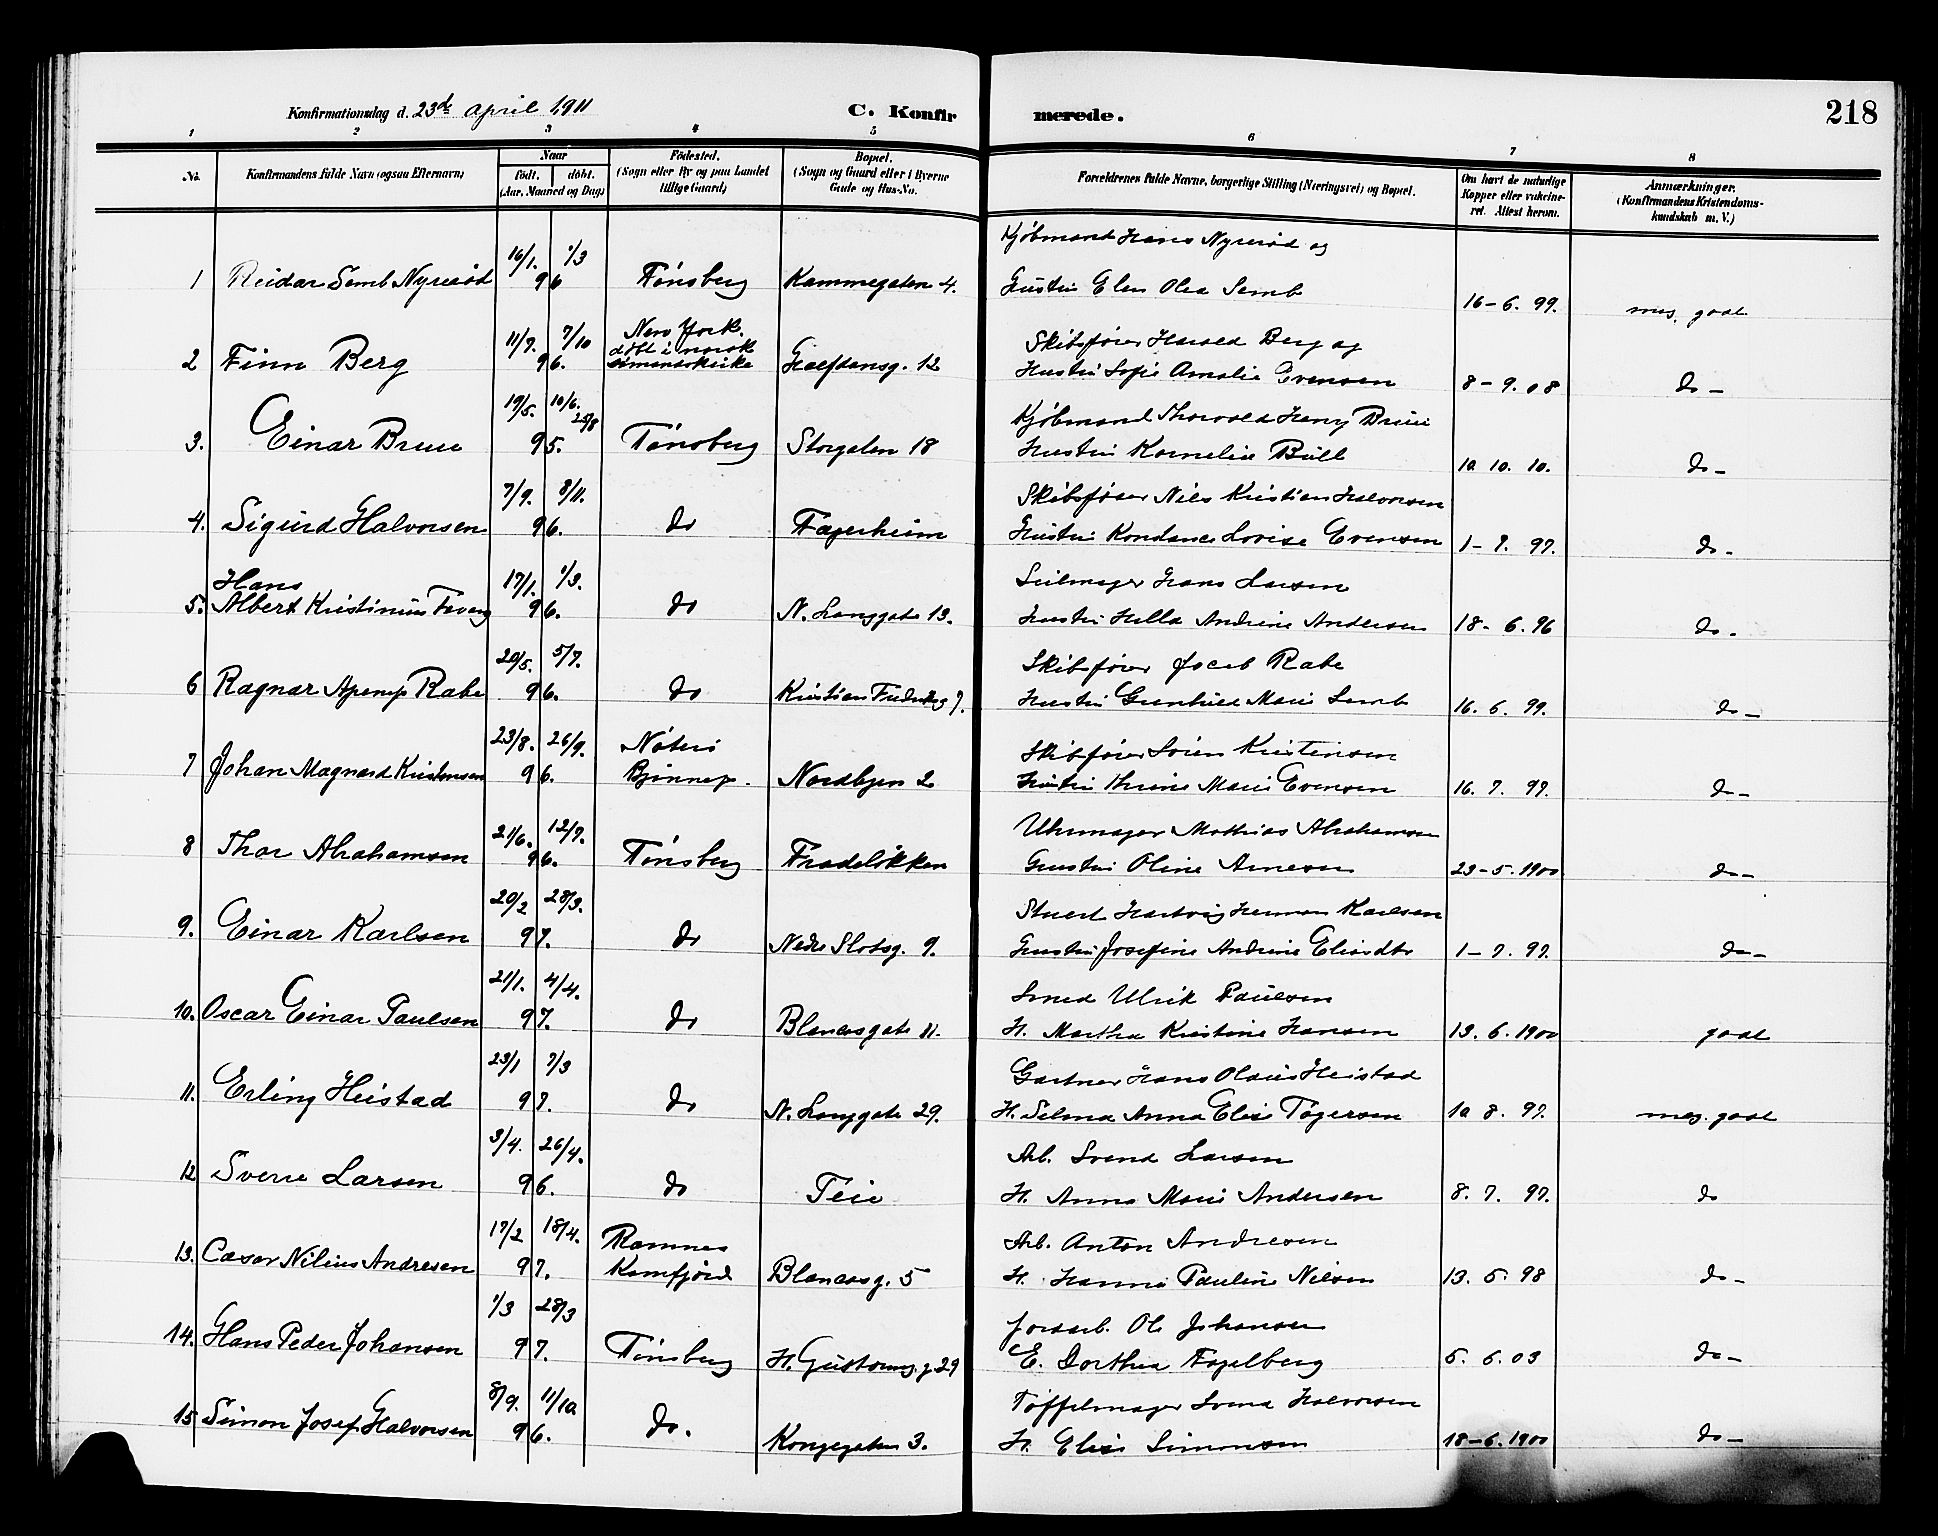 Konfirmationsdag d. 23de April 1911
C. Konfirmerede.
218
1 2 3 4 5 6 7 8
No. Konfirmandens fulde Navn (ogsaa Efternavn) Naar født. døbt. (Aar, Maaned og Dag) Fødested. (Sogn eller By og paa Landet tillige Gaard) Bopæl. (Sogn og Gaard eller i Byerne Gade og Hus-No. Forældrenes fulde Navne, borgerlige Stilling (Næringsvei) og Bopæl. Om havt de naturlige Kopper eller vakcineret. Attest herom. Anmærkninger. (Konfirmandens Kristendomskundskab m. V.)
16/1. 1/3 Kjøbmand Hans Nyrerød og
1 Reidar Semb Nyrerød 96 Tønsberg Kammegaten 4. Hustru Elen Olea Semb 16-6. 99. meg. godt
11/7. 7/10 New York. døbt i norsk sømandskirke Skibsfører Harald Berg og
2 Finn Berg 96. Halfdansg. 12 Hustru Sofie Amalie Evensen 8-9. 08 do-
19/5. 10/6. 25/8 Kjøbmand Thorvald Henry Bruu
3. Einar Bruu 95. Tønsberg Storgaten 18 Hustru Kornelia Büll 10 10. 10. do-
7/9. 8/11. Skibsfører Nils Kristian Halvorsen
4. Sigurd Halvorsen 96. do Fagerheim Hustru Konstance Lovise Evensen 1-7. 97. do-
Hans 17/1. 1/3. Seilmager Hans Larsen
5. Albert Kristinius Favang 96. do N. Langgate 13. Hustru Hilla Andrine Andersen 18-6. 96 do.
20/5. 5/7. Skibsfører Jacob Rabe
6 Ragnar Rabe 96. do Kristian Frederiksg 7. Hustru Gunhild Marie Semb 16. 6. 99. do-
23/8. 26/9. Nøterø Skibsfører Søren Kristensen
7 Johan Magnard Kristensen 96. Nordbyen 2 Hustru Marie Evensen 16. 7. 97. do-
21/6. 12/7. Uhrmager Mathias Abrahamsen
8 Thor Abrahamsen 96. Tønsberg Fradeløkken Hustru Oline Arnesen 23-5. 1900 do-
20/2 28/3. Stuert Hartvig Herman Karlsen
9. Einar Karlsen 97. do Nedre Slotsg. 9. Hustru Josefine Andrine Eliasdtr 1-7. 97. do-
21/1. 4/4. Smed Ulrik Paulsen
10. Oscar Einar Paulsen 97. do Blancasgate 11. H. Martha Kristine Hansen 13. 6. 1900 godt
23/1 7/3 Gartner Hans Olaus Heistad
11. Erling Heistad 97. do N. Langgate 29. H. Selma Anna Elise Tøgersen 10 8. 97. meg. godt
3/4. 26/4. Arb. Svend Larsen
12 Sverre Larsen 96. do Teie H. Anna Marie Andersen 8. 7. 97. do
17/2 18/4. Ramnes Arb. Anton Andresen
13. Cæsar Nilius Andresen 97. Kamfjord Blancasg. 5 H. Hanna Pauline Nilsen 13. 5. 98 do-
1/3 28/3 forsarb. Ole Johansen
14. Hans Peder Johansen 97. Tønsberg H. g 29 E. Dorthea Fagelberg 5. 6. 03 do-
8/9. 11/10 Tøffelmager Svend Halvorsen
15 Simon Josef Halvorsen 96. do. Kongegaten 3. H. Elise Simonsen 18-6. 1900 do-